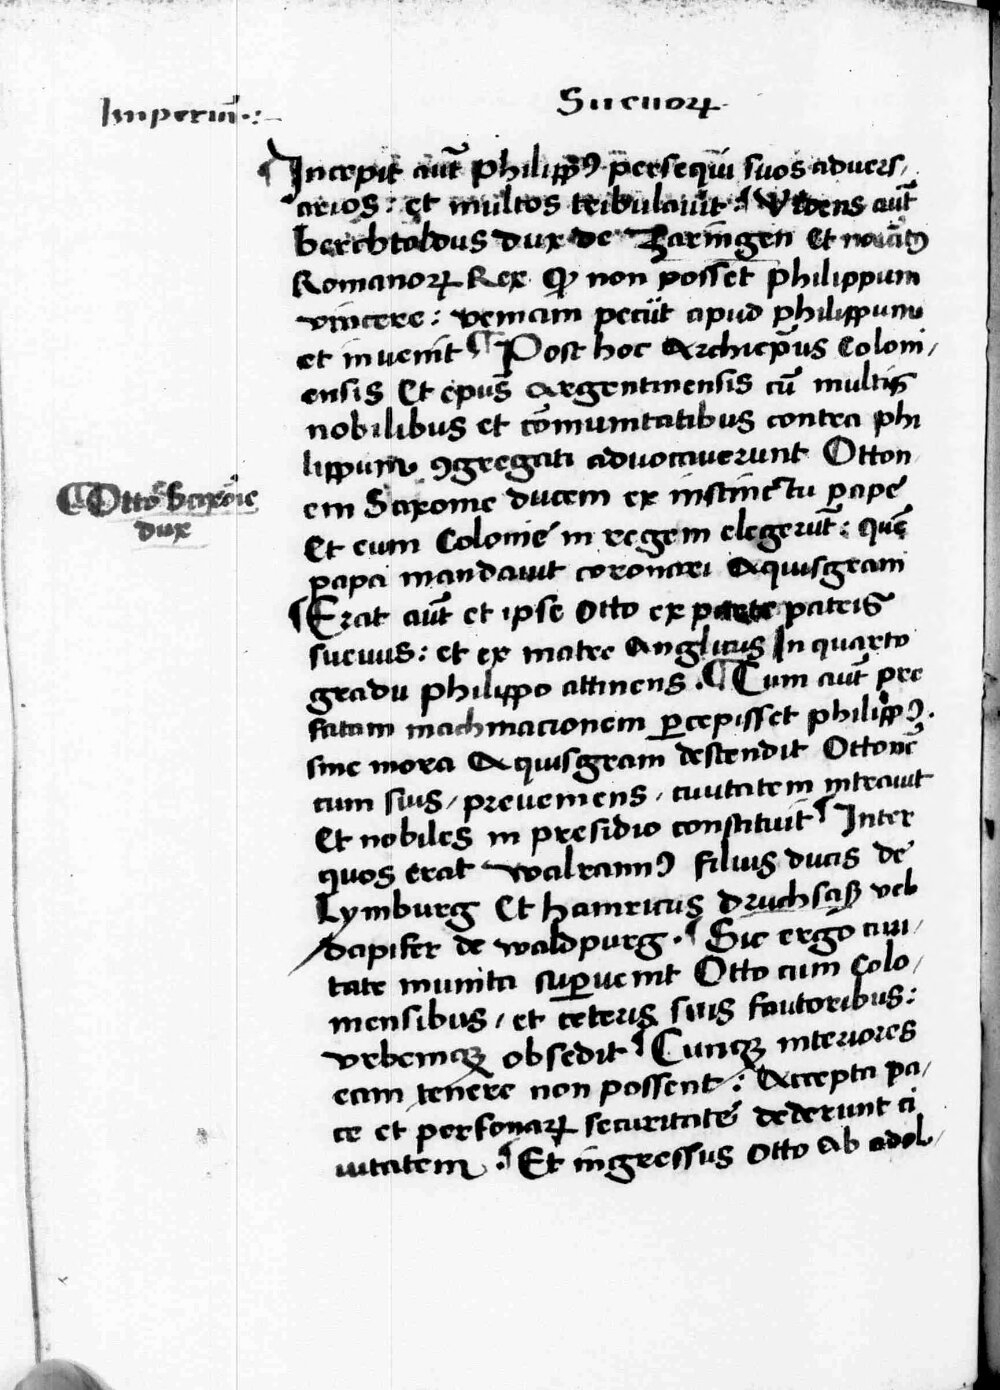 Imperiū·:
Sueuoꝝ·
¶ Incepit aut̄ Philippꝰ persequi suos aduers,
arios: et multos tribulauit: ¶ Videns aut̄
berchtoldus dux de Zaringen Et noiatꝰ
Romanoꝝ Rex ꝙ non posset philippum
vincere: veniam peciit apud philippum
et inuenit ¶ Post hoc Archiep̄us Coloni,
ensis Et ep̄us Argentinensis cū multis
nobilibus et cōmunitatibus contra phi
lippum ꝯgregati aduocauerunt Otton
em Saxonie ducem ex instinctu pape
Et eum Colonie in regem elegerūt: quē
papa mandauit coronari Aquisgrani
¶ Erat aut̄ et ipse Otto ex parte patris
sueuus: et ex matre Anglicus In quarto
gradu philippo attinens . ¶ Cum aut̄ pre
fatam machinacionem ꝑcepisset philippꝰ.
sine mora Aquisgrani descendit Ottonē
cum suis, preueniens, ciuitatem intrauit
Et nobiles in presidio constituit ¶ Inter
quos erat walrannꝰ filius ducis de
Lymburg Et hainricus druchsaß vel
dapifer de waldpurg. ¶ Sic ergo ciui,
tate munita suꝑuenit Otto cum Colo,
niensibus, et ceteris suis fautoribus:
vrbemqꝫ obsedit ¶ Cumqꝫ interiores
eam tenere non possent: Accepta pa,
ce et personaꝝ securitate dederunt ci
uitatem . ¶ Et ingressus Otto ab adol,
¶ Otto Saxōie
dux